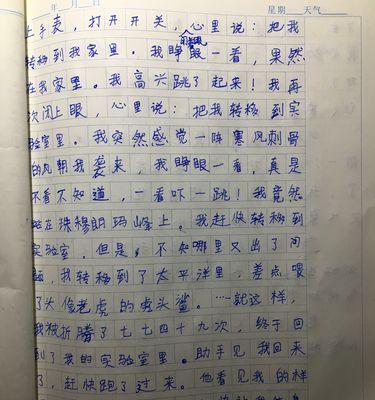 年 月 日 星期 天气
上手表，打开开关，心里说：把我
转移到我家里。我睁眼一看，果然
在我家里。我高兴跳了起来！我再
次闭上眼，心里说：把我转移到实
验室里。我突然感觉一阵寒风刺骨
的风朝我袭来，我睁眼一看，真是
不看不知道，一看吓一跳！我竟然
站在珠穆朗玛峰上。我赶快转移到
实验室。但是，不知哪里又出了问
题，我转移到了太平洋里，差点喂
了大像老虎的齿头鲨。……就这样，
我被折腾了七七四十九次，终于回
到了我的实验室里。助手见我回来
了，赶快跑了过来。他看见我的样